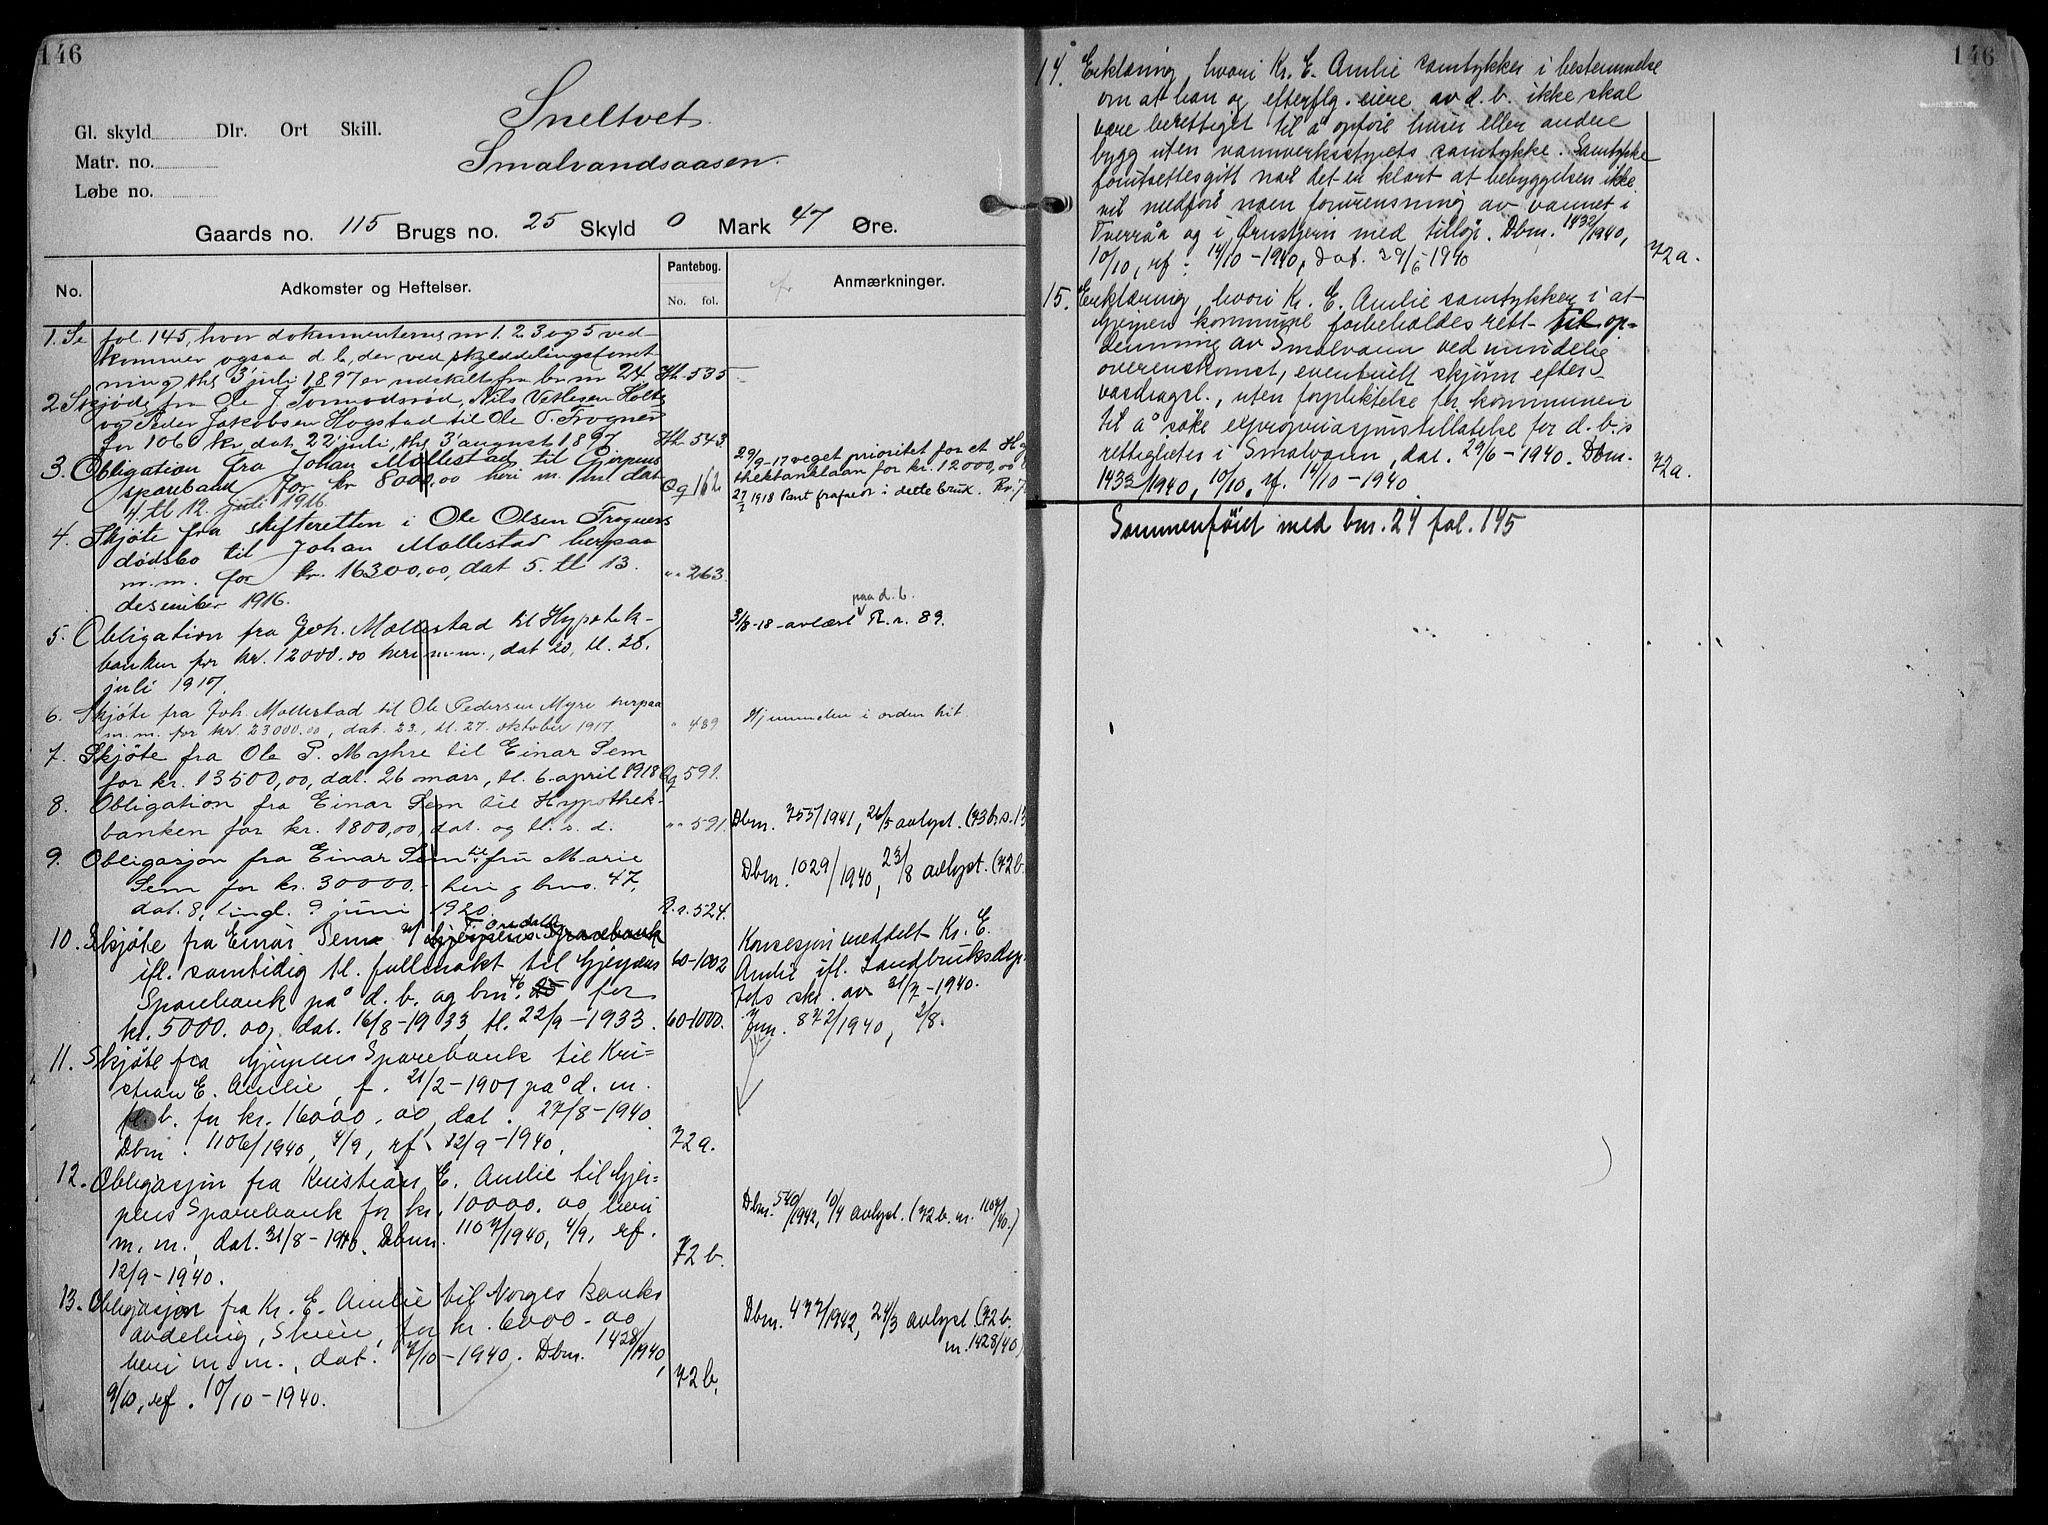 146
Sneltvet
Gl. skyld Dlr. Ort Skill.
Matr. no.
Smalvandsaasen
Løbe no.
Gaards no. 115 Brugs no. 25 Skyld 0 Mark 47 Øre.
No. Adkomster og Heftelser. Pantebog. No. fol. Anmærkninger.
1. Se fol. 145, hvor dokumenterne nr 1. 2 3 og 5 ved-
kommer ogsaa d b, der ved skylddelingsforret
ning thgl 3' juli 1897 er udskilt fra br nr 24. Hh 535
2 Skjøde fra Ole J. Tormodsrød, Nils Vetlesen Holte
og Peder Jakobsen Hogstad til Ole T. Trogner
for 106 kr, dat. 22' juli, thgl 3' august 1897 Hh 543
3. Obligation fra Johan Mollestad til Gjerpens
sparebank for kr 8000,00 heri m. m. dat
4. tl 12. juli 1916. Qq 162
29/9-17 veget prioritet for et Hypo
thekbanklaan for kr. 12000,00
27/7 1918 Pant frafaldt i dette bruk.
4. Skjøte fra skifteretten i Ole Olsen Trogners
dødsbo til Johan Mollestad herpaa
m.m. for kr. 16300,00, dat 5. tl 13.
desember 1916. " 263.
5. Obligation fra Joh. Mollestad til Hypothek-
banken for kr. 12000.00 heri m.m., dat 20, tl. 28.
juli 1917.
paa d. b.
31/8-18-avlæst R.r. 89.
6. Skjøte fra Joh. Mollestad til Ole Pedersen Myre herpaa
m. m. for kr. 23000.00, dat. 23., tl. 27. oktober 1917 " 489 Hjemmelen i orden hit.
7. Skjøte fra Ole P. Myhre til Einar Sem
for kr. 13500,00, dat. 26 mars, tl. 6. april 1918 Qq 591.
8. Obligation fra Einar Sem til Hypothek-
banken for kr. 1800,00, dat. og tl. s. d. " 591. Dbm. 755/1941, 26/5 avlyst.
9. Obligasjon fra Einar Sem til fru Marie
Sem for kr. 30000.- heri g bnr. 47,
dat. 8, tingl. 9 juni 1920. R.r. 524. Dbm. 1029/1940, 23/8 avlyst. (72 b.
10. Skjøte fra Einar Sem Gjerpens Sparebank
ifl. samtidig tl. fullmakt til Gjerpens 60-1002
Sparebank på d. b. og bnr. 46 25 for
kr. 5000.00, dat. 16/8-1933, tl. 22/9-1933. 60-1000.
Konsesjon meddelt Kr. E.
Amlie ifl. Landbruksdep
tets skr. av 31/7-1940.
Jnr. 872/1940, 2/8.
11. Skjøte fra Gjerpens Sparebank til Kri=
stian E. Amlie, f. 21/2-1901 på d. m.
fl. b. for kr. 16000,00, dat. 27/8-1940.
Dbm. 1106/1940, 4/9, rf. 12/9-1940. 72a.
12. Obligasjon fra Kristian E. Amlie til Gjer-
pens Sparebank for kr. 10000.00 heri
m. m., dat. 31/8-1940. Dbm. 1107/1940, 4/9, rf.
12/9-1940. 72 b.
Dbm. 540/1942, 10/4 avlyst. (72 b. nr. 1107/40.)
13. Obligasjon fra Kr. E. Amlie til Norges Banks
avdeling, Skien, for kr. 6000-00
heri m. m., dat. 7/10-1940. Dbm. 1428/1940,
9/10, rf. 10/10-1940. 72 b.
Dbm. 477/1942, 24/3 avlyst. (72 b.
nr. 1428/40)
146
14. Erklæring, hvori Kr. E. Amlie samtykker i bestemmelse
om at han og efterflg. eiere av d. b. ikke skal
være berettiget til å opføre huser eller andre
bygg uten vannverksstyrets samtykke. Samtykke
forutsettes gitt når det er klart at bebyggelsen ikke
vil medføre noen forurensning av vannet i
Tverråa og i Ørnstjern med tilløp. Dbm. 1432/1940,
10/10, rf. 14/10-1940, dat. 29/6-1940 72a.
15. Erklæring, hvori Kr. E. Amlie samtykker i at
Gjerpen kommune forbeholdes rett til op=
demning av Smalvann ved mindelig
overenskomst, eventuelt skjønn efter
vasdragsl., uten forpliktelse for kommunen
til å søke ekspropriasjonstillatelse for d. b.s
rettigheter i Smalvann, dat. 29/6-1940. Dbm.
1433/1940, 10/10, rf. 14/10-1940. 72a.
Sammenføiet med bnr. 24 fol. 145